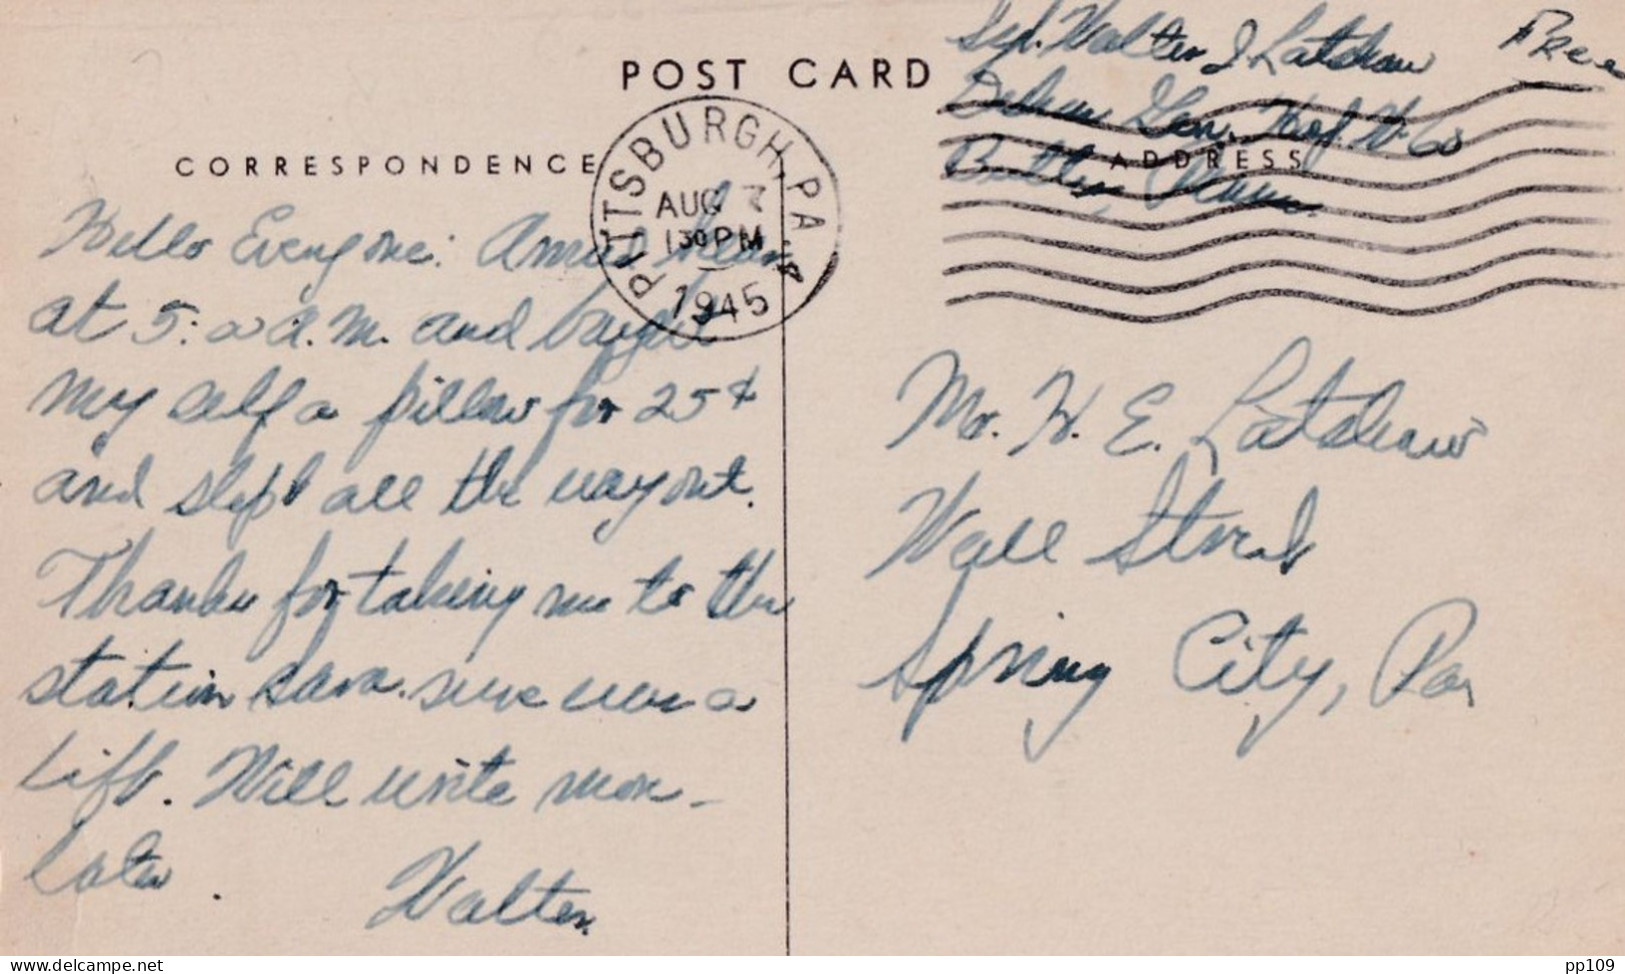 Sgt. Walter J. Latshaw
Free
Deshon Gen. Hosp. W-60
Butler, Penna.
POST CARD
CORRESPONDENCE
ADDRESS
PITTSBURGH, PA
AUG 7
130 PM
1945
Hello Everyone: Arrived here
at 5: a.m. and bought
my self a pillow for 25¢
and slept all the way out.
Thanks for taking me to the
station Sara. sure was a
lift. Will write more
later.
Walter.
Mr. H. E. Latshaw
Wall Street
Spring City, Pa,
delcampe.net
pp109